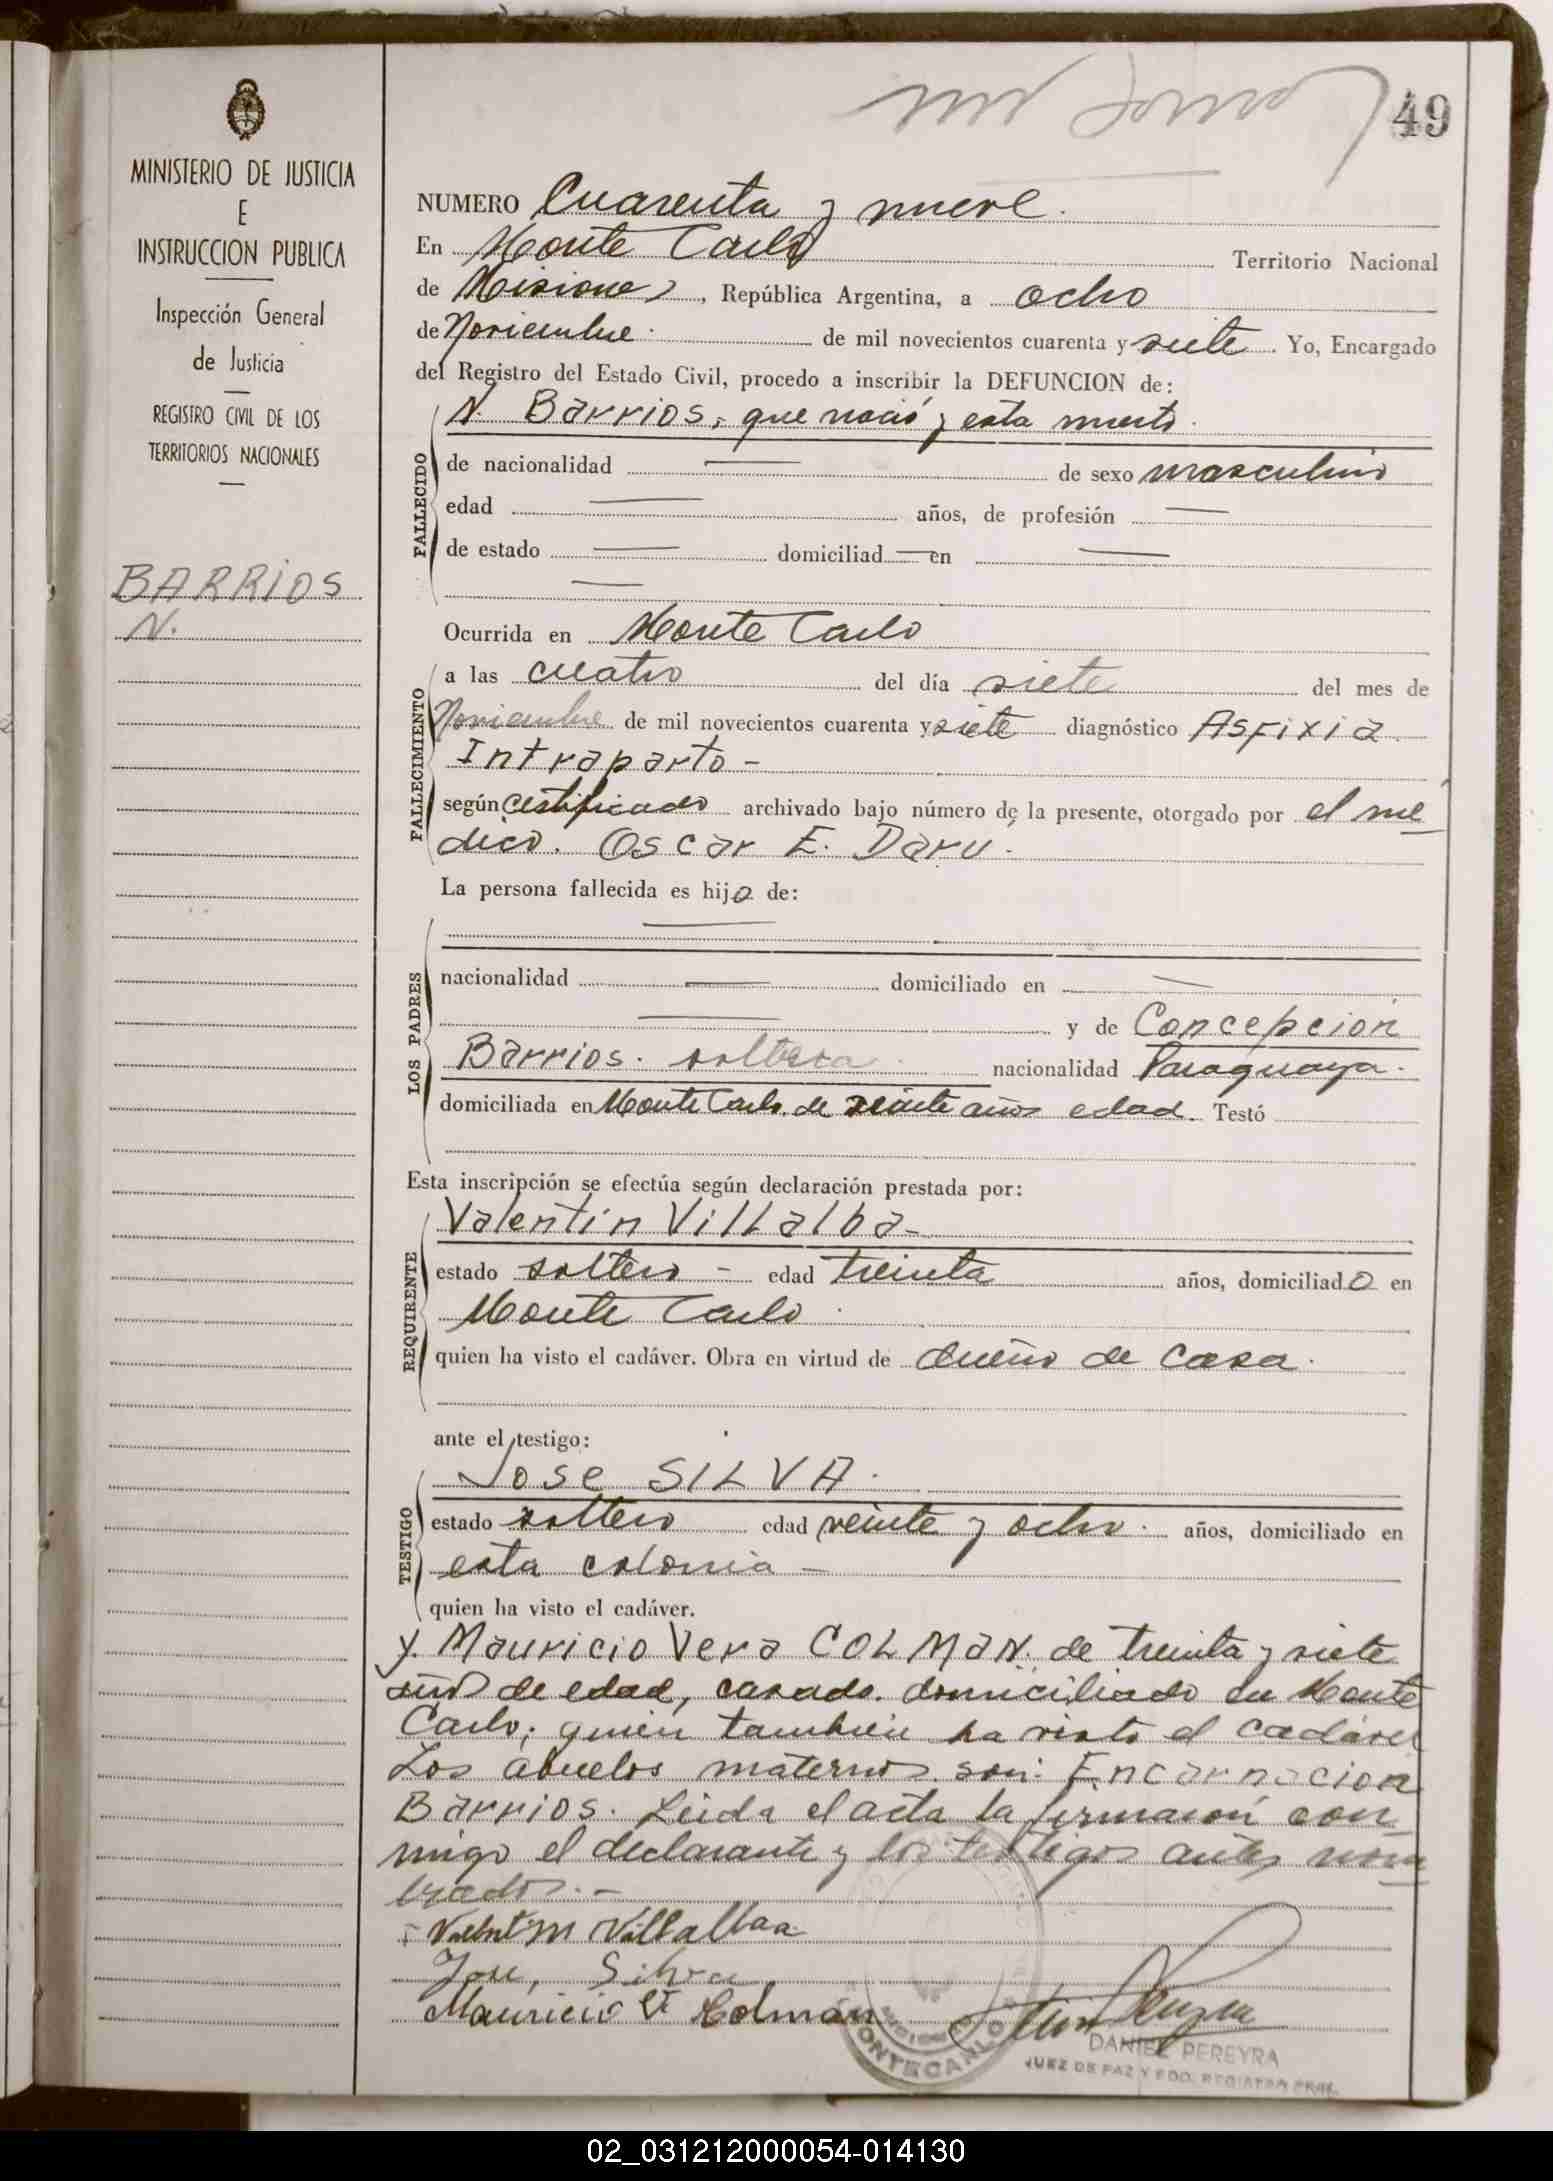 49
MINISTERIO DE JUSTICIA
E
INSTRUCCION PUBLICA
Inspección General
de Justicia
REGISTRO CIVIL DE LOS
TERRITORIOS NACIONALES
BARRIOS
N.
NUMERO Cuarenta y nueve.
En Monte Carlo Territorio Nacional
de Misiones, República Argentina, a ocho
de Noviembre de mil novecientos cuarenta y siete. Yo, Encargado
del Registro del Estado Civil, procedo a inscribir la DEFUNCION de:
FALLECIDO
N. Barrios, que nació y esta muerto.
de nacionalidad — de sexo masculino
edad — años, de profesión —
de estado — domiciliad— en —
—
FALLECIMIENTO
Ocurrida en Monte Carlo
a las cuatro del día siete del mes de
Noviembre de mil novecientos cuarenta y siete diagnóstico Asfixia
Intraparto -
según certificado archivado bajo número de la presente, otorgado por el mé
dico. Oscar E. Darú.
La persona fallecida es hijo de:
LOS PADRES
—
nacionalidad — domiciliado en —
— y de Concepción
Barrios. soltera nacionalidad Paraguaya.
domiciliada en Monte Carlo. de años edad. Testó
Esta inscripción se efectúa según declaración prestada por:
REQUIRENTE
Valentín Villalba-
estado soltero - edad treinta años, domiciliado en
Monte Carlo
quien ha visto el cadáver. Obra en virtud de dueño de casa.
ante el testigo:
TESTIGO
Jose SILVA.
estado soltero edad veinte y ocho. años, domiciliado en
esta colonia -
quien ha visto el cadáver.
y. Mauricio Vera COLMAN. de treinta y siete
años de edad, casado. domiciliado en Monte
Carlo; quien tambien ha visto el cadáver
Los abuelos maternos. son: Encarnacion
Barrios. Leida el acta la firmaron con
migo el declarante y los testigos antes nom
brados. -
Valentin Villalbaa
José, Silva
Mauricio V Colmán
MONTECARLO
DANIEL PEREYRA
JUEZ DE PAZ Y
02_031212000054-014130